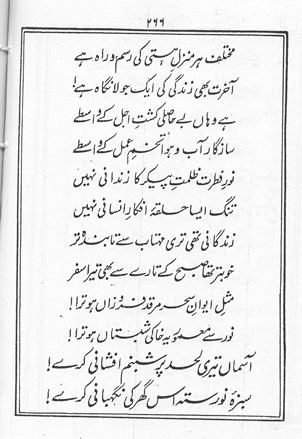 ۲۶۶
مختلف ہر منزل ہستی کی رسم و راہ ہے
آخرت بھی زندگی کی ایک جولانگاہ ہے!
ہے وہاں بے حاصلی کشتِ اجل کے واسطے
سازگار آب و ہوا تخمِ عمل کے واسطے
نورِ فطرت ظلمتِ پیکر کا زندانی نہیں
تنگ ایسا حلقۂ افکارِ انسانی نہیں
زندگانی تھی تری مہتاب سے تابندہ تر
خوب تر تھا صبح کے تارے سے بھی تیرا سفر
مثلِ ایوانِ سحر مرقد فروزاں ہو ترا!
نور سے معمور یہ خاکی شبستاں ہو ترا!
آسماں تیری لحد پر شبنم افشانی کرے!
سبزۂ نورستہ اس گھر کی نگہبانی کرے!